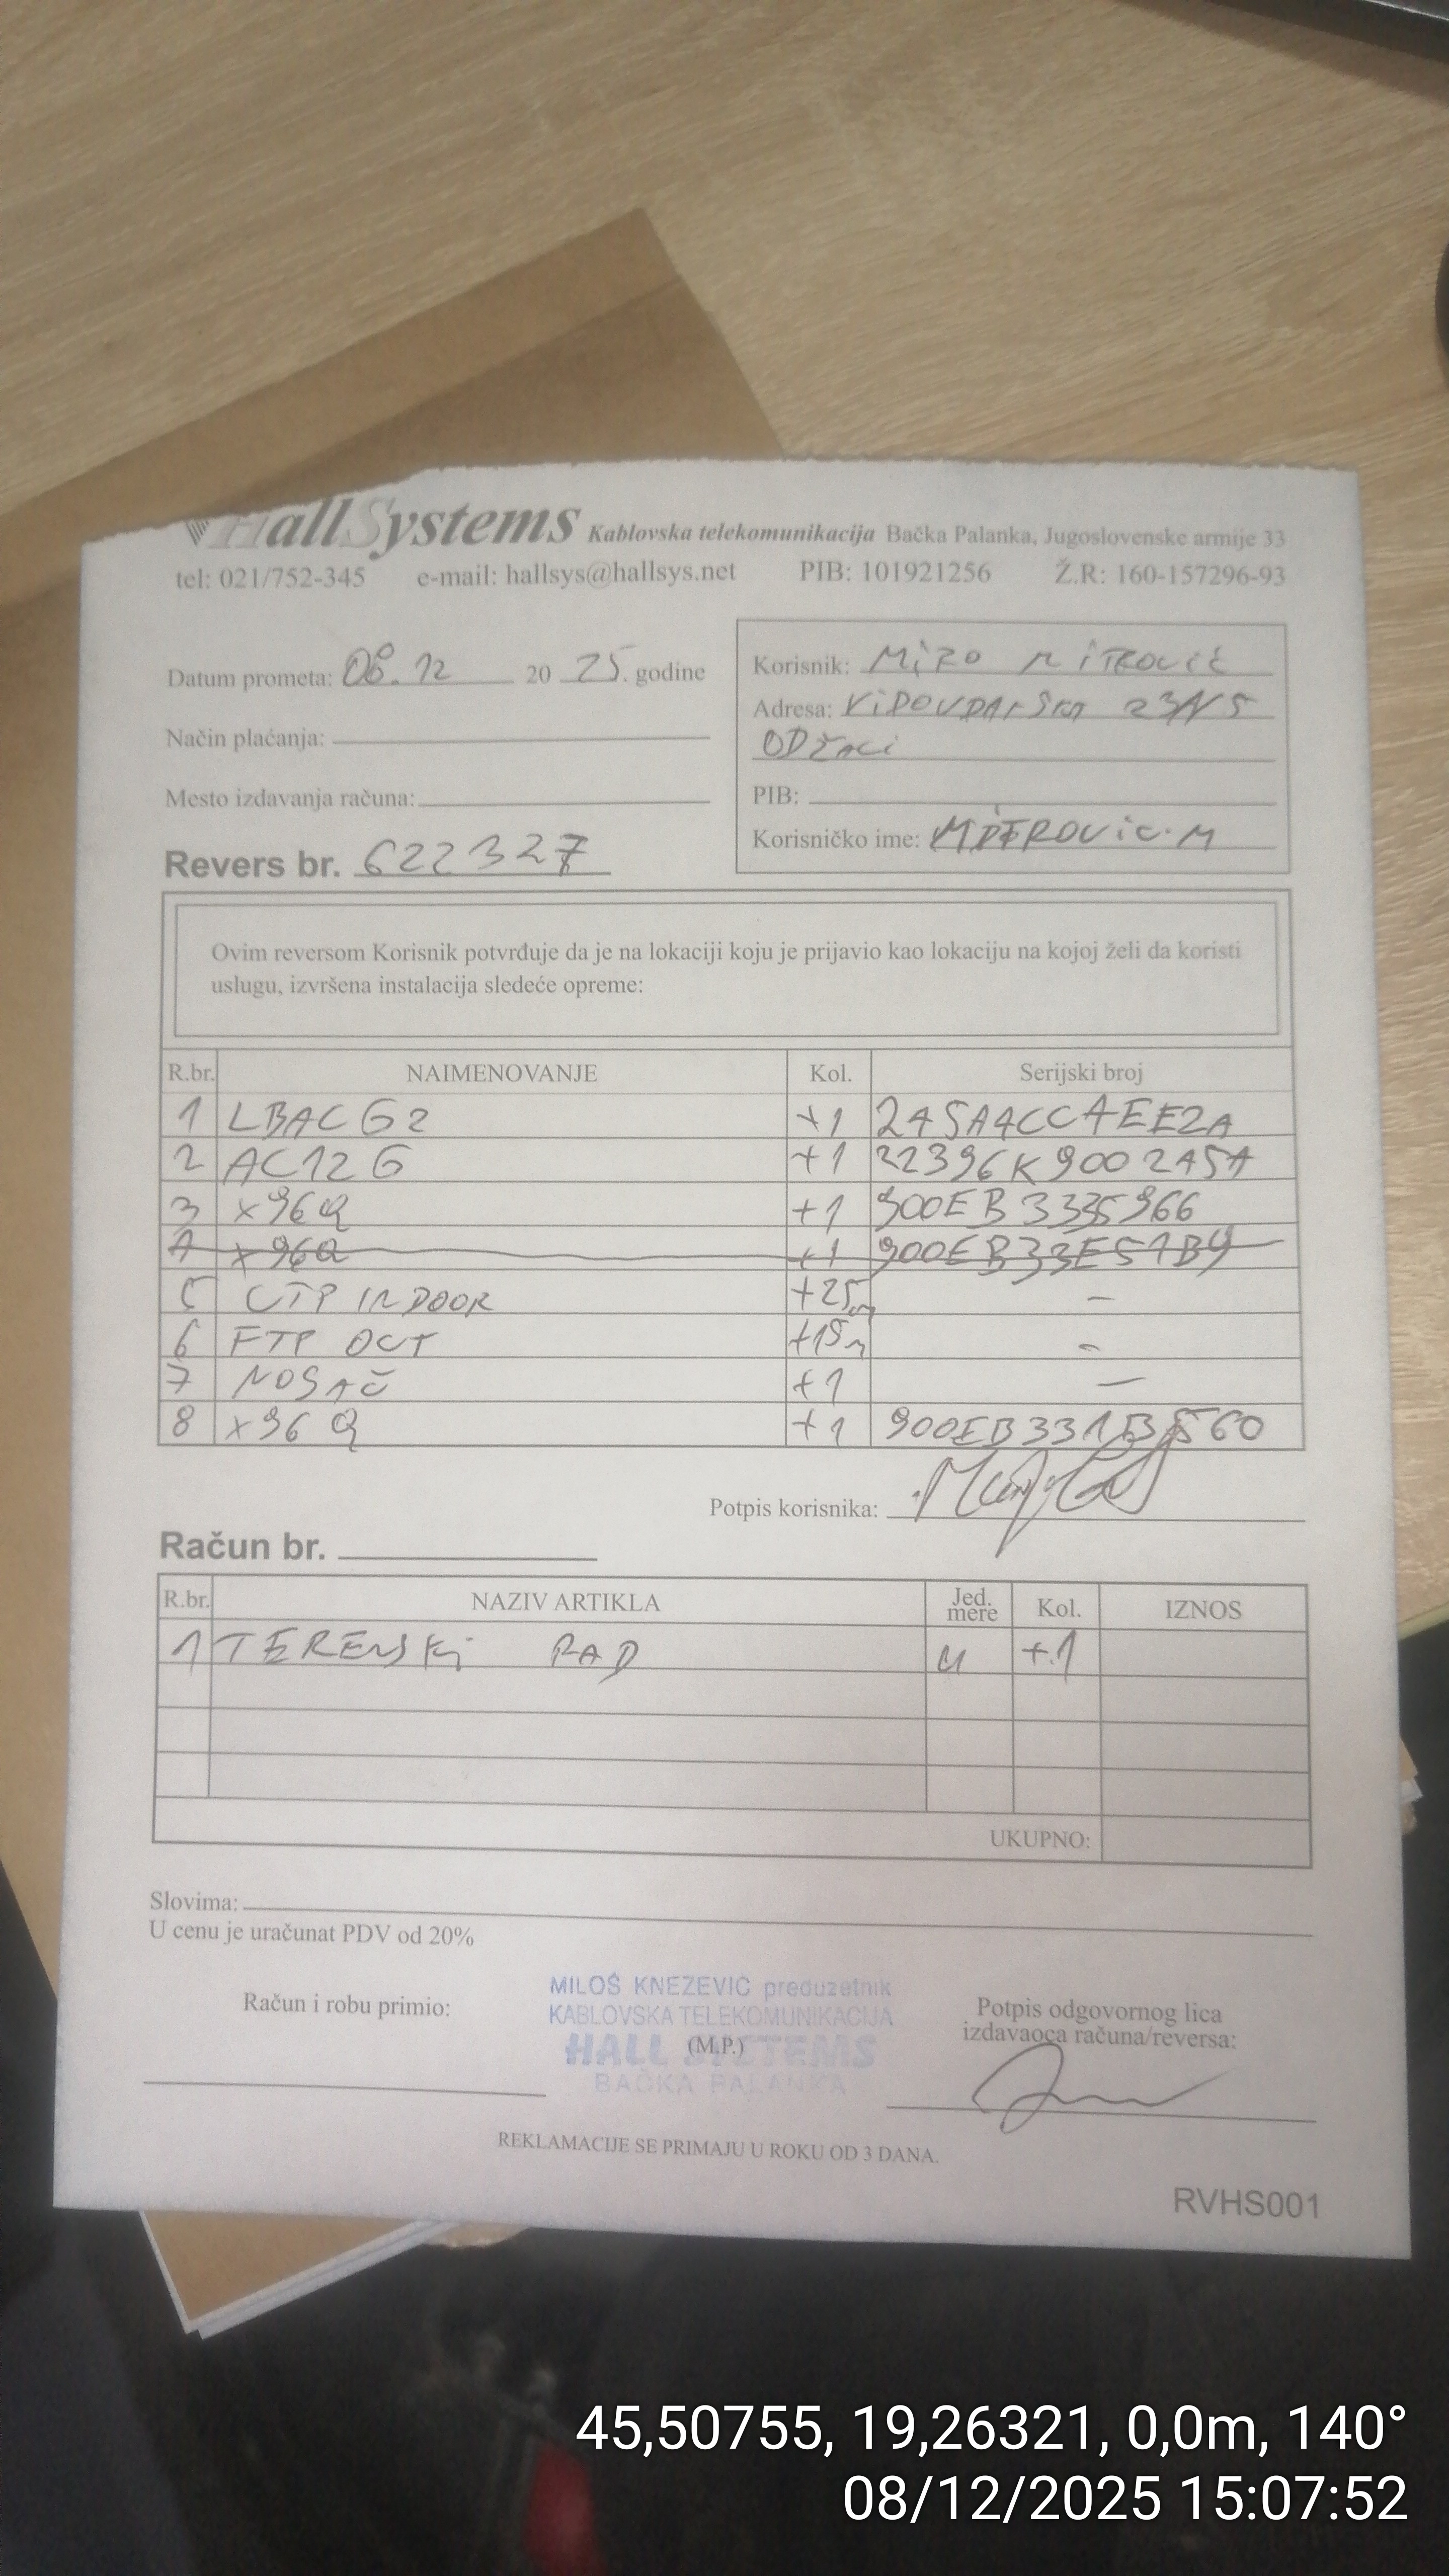 HallSystems Kablovska telekomunikacija Bačka Palanka, Jugoslovenske armije 33
tel: 021/752-345 e-mail: hallsys@hallsys.net PIB: 101921256 Ž.R: 160-157296-93
Datum prometa: 08.12 20 25. godine
Način plaćanja:
Mesto izdavanja računa:
Revers br. 622327
Korisnik: MiRO MiTROVić
Adresa: ViDOVDANSKA 23/15
ODŽACi
PIB:
Korisničko ime: MiTROVic.M
Ovim reversom Korisnik potvrđuje da je na lokaciji koju je prijavio kao lokaciju na kojoj želi da koristi
uslugu, izvršena instalacija sledeće opreme:
R.br. NAIMENOVANJE Kol. Serijski broj
1 LBAC G2 +1 245A4CCAEE2A
2 AC12 G +1 22396K900245A
3 x96Q +1 900EB3335966
4 x96Q +1 900EB33E51B9
5 UTP INDOOR +25m –
6 FTP OUT +15m –
7 NOSAČ +1 –
8 x96 Q +1 900EB331B560
Potpis korisnika:
Račun br.
R.br. NAZIV ARTIKLA Jed. mere Kol. IZNOS
1 TERENSKi RAD U +1
UKUPNO:
Slovima:
U cenu je uračunat PDV od 20%
Račun i robu primio:
MILOŠ KNEŽEVIĆ preduzetnik
KABLOVSKA TELEKOMUNIKACIJA
HALL SYSTEMS
(M.P.)
BAČKA PALANKA
Potpis odgovornog lica
izdavaoca računa/reversa:
REKLAMACIJE SE PRIMAJU U ROKU OD 3 DANA.
RVHS001
45,50755, 19,26321, 0,0m, 140°
08/12/2025 15:07:52